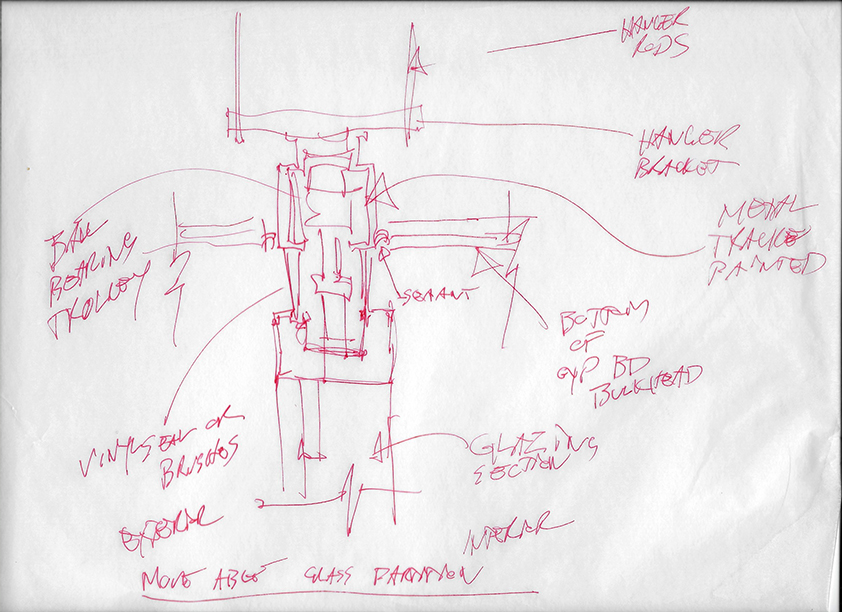 HANGER
RODS
HANGER
BRACKET
METAL
TRACK
PAINTED
BALL
BEARING
TROLLEY
SEALANT
BOTTOM
OF
GYP BD
BULKHEAD
VINYL SEAL OR
BRUSHES
GLAZING
SECTION
EXTERIOR
INTERIOR
MOVEABLE GLASS PARTITION